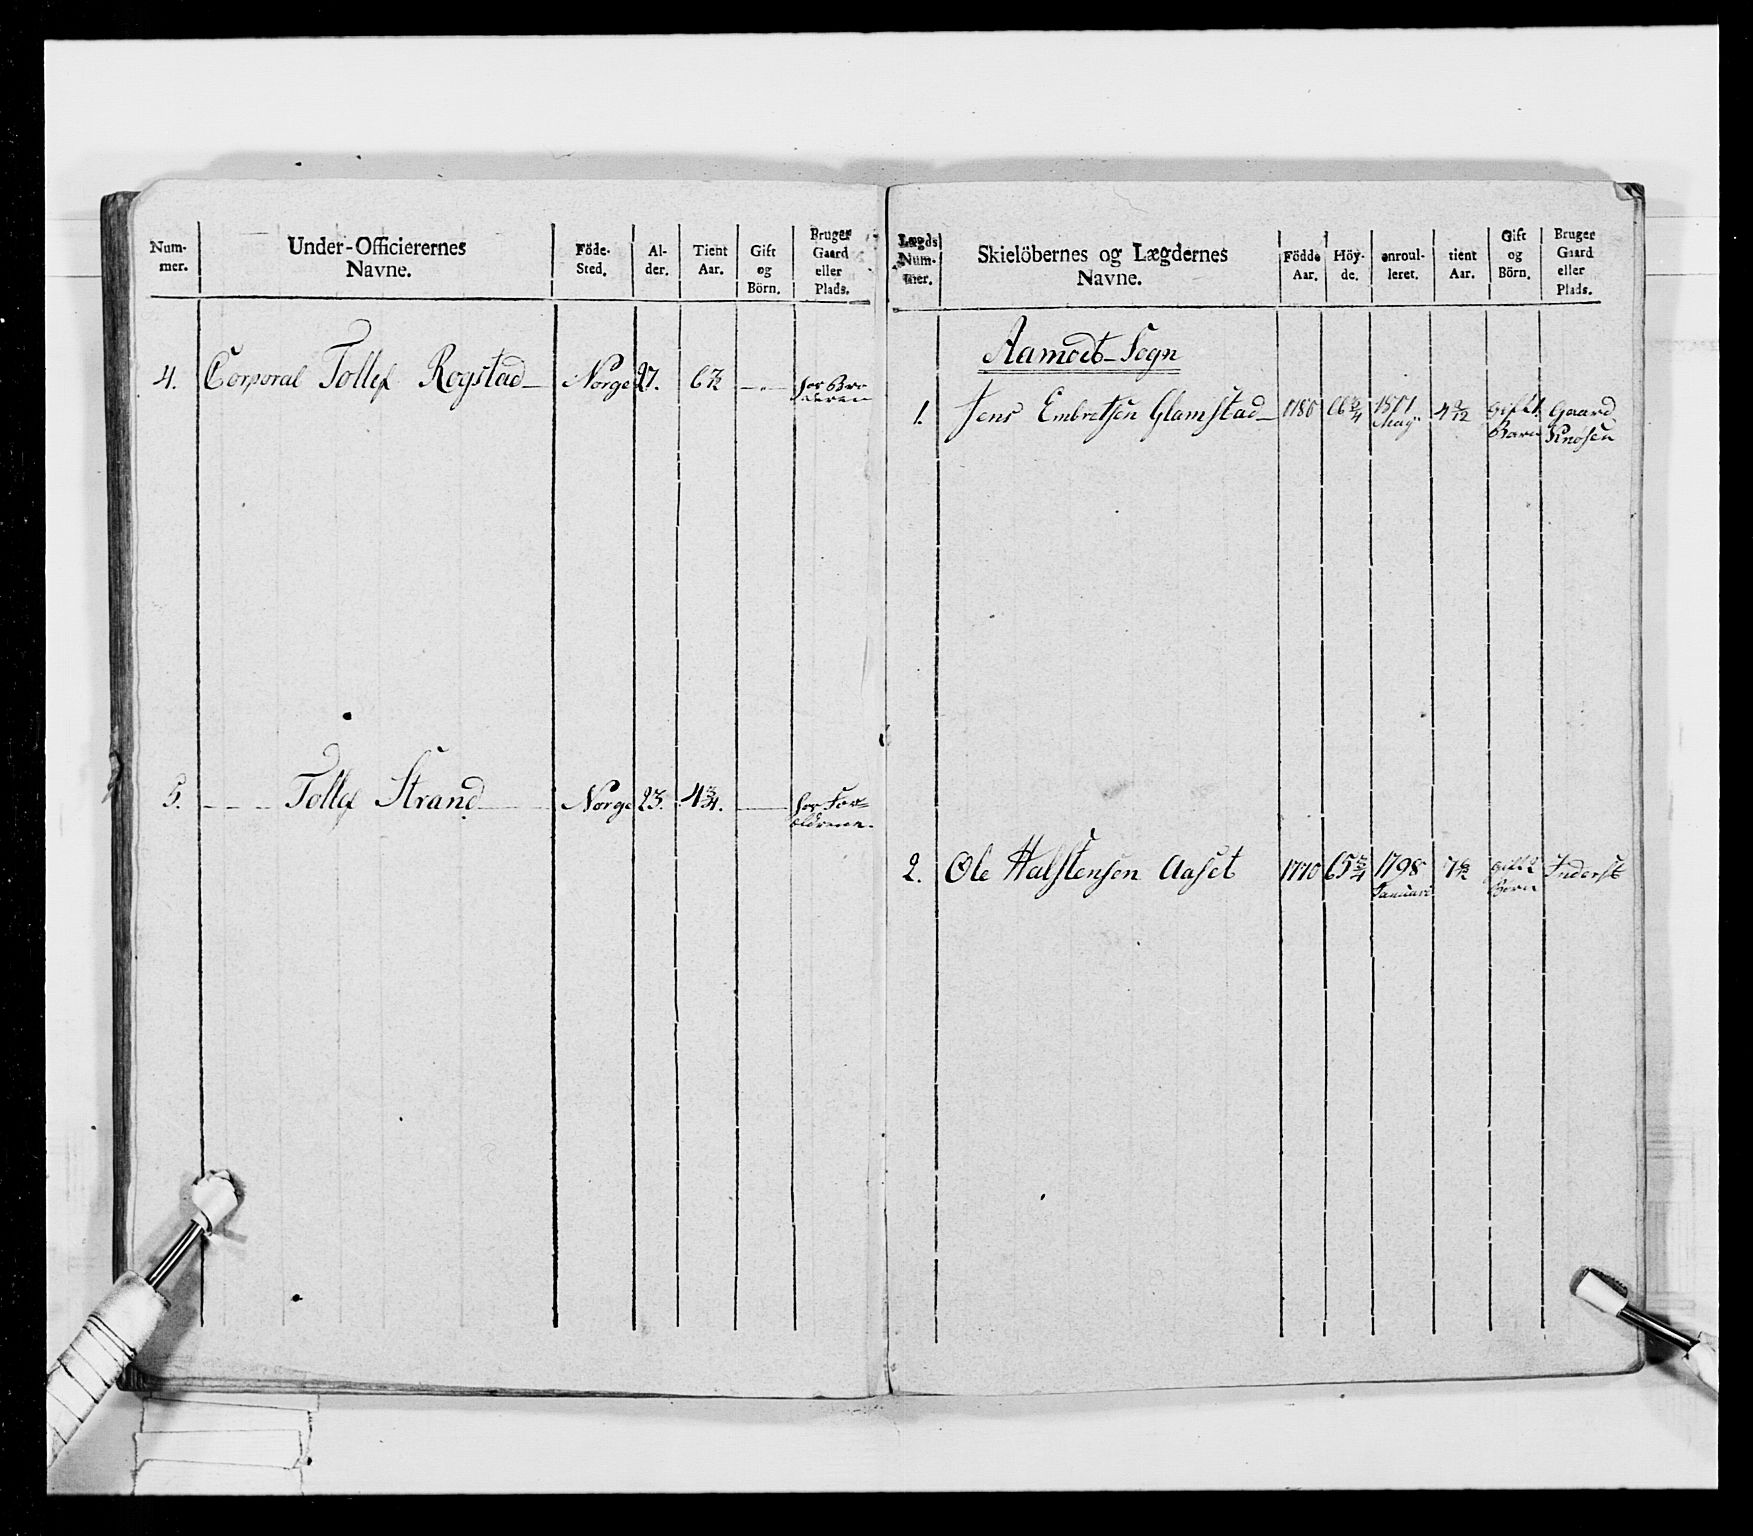 Num-
mer.
Under-Officierernes
Navne.
Föde-
Sted.
Al-
der.
Tient
Aar.
Gift
og
Börn.
Bruger
Gaard
eller
Plads.
4. Corporal Tollef Rogstad Norge 27. 6½ for Bro
deren
5. Tollef Strand Norge 23. 4¾. for For=
ældrene.
Lægds
Num-
mer.
Skielöbernes og Lægdernes
Navne.
Födde
Aar.
Höy-
de.
enroul-
leret.
tient
Aar.
Gift
og
Börn.
Bruger
Gaard
eller
Plads.
Aamodt Sogn
1. Jens Embretsen Glamstad Gift 1. Gaard
Barn
2. Ole Halstensen Aaset 1770 65¾ 1798 Gift 2 Inderst
Januari Börn